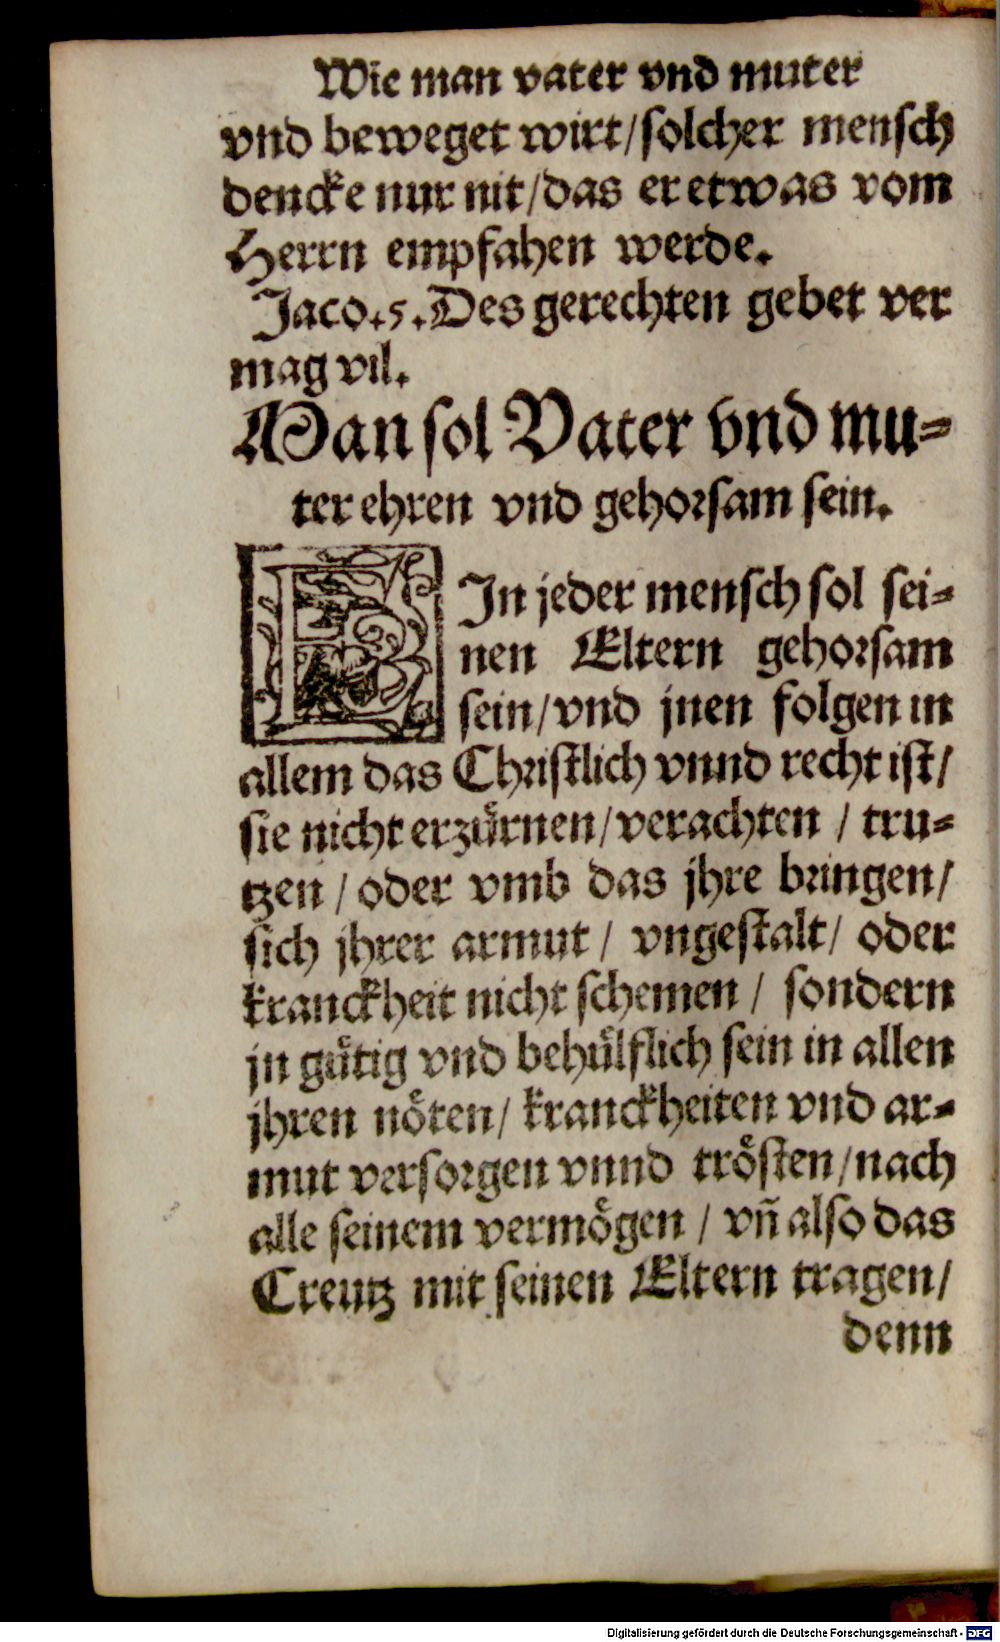 Wie man vater vnd muter
vnd beweget wirt/solcher mensch
dencke nur nit/das er etwas vom
Herrn empfahen werde.
Jaco.5.Des gerechten gebet ver
mag vil.
Man sol Vater vnd mu-
ter ehren vnd gehorsam sein.
EIn jeder mensch sol sei-
nen Eltern gehorsam
sein/vnd jnen folgen in
allem das Christlich vnnd recht ist/
sie nicht erzürnen/verachten / tru-
tzen / oder vmb das jhre bringen/
sich jhrer armut / vngestalt/ oder
kranckheit nicht schemen / sondern
jn gütig vnd behülflich sein in allen
jhren nöten/ kranckheiten vnd ar-
mut versorgen vnnd trösten/nach
alle seinem vermögen / vñ also das
Creutz mit seinen Eltern tragen/
denn
Digitalisierung gefördert durch die Deutsche Forschungsgemeinschaft - DFG